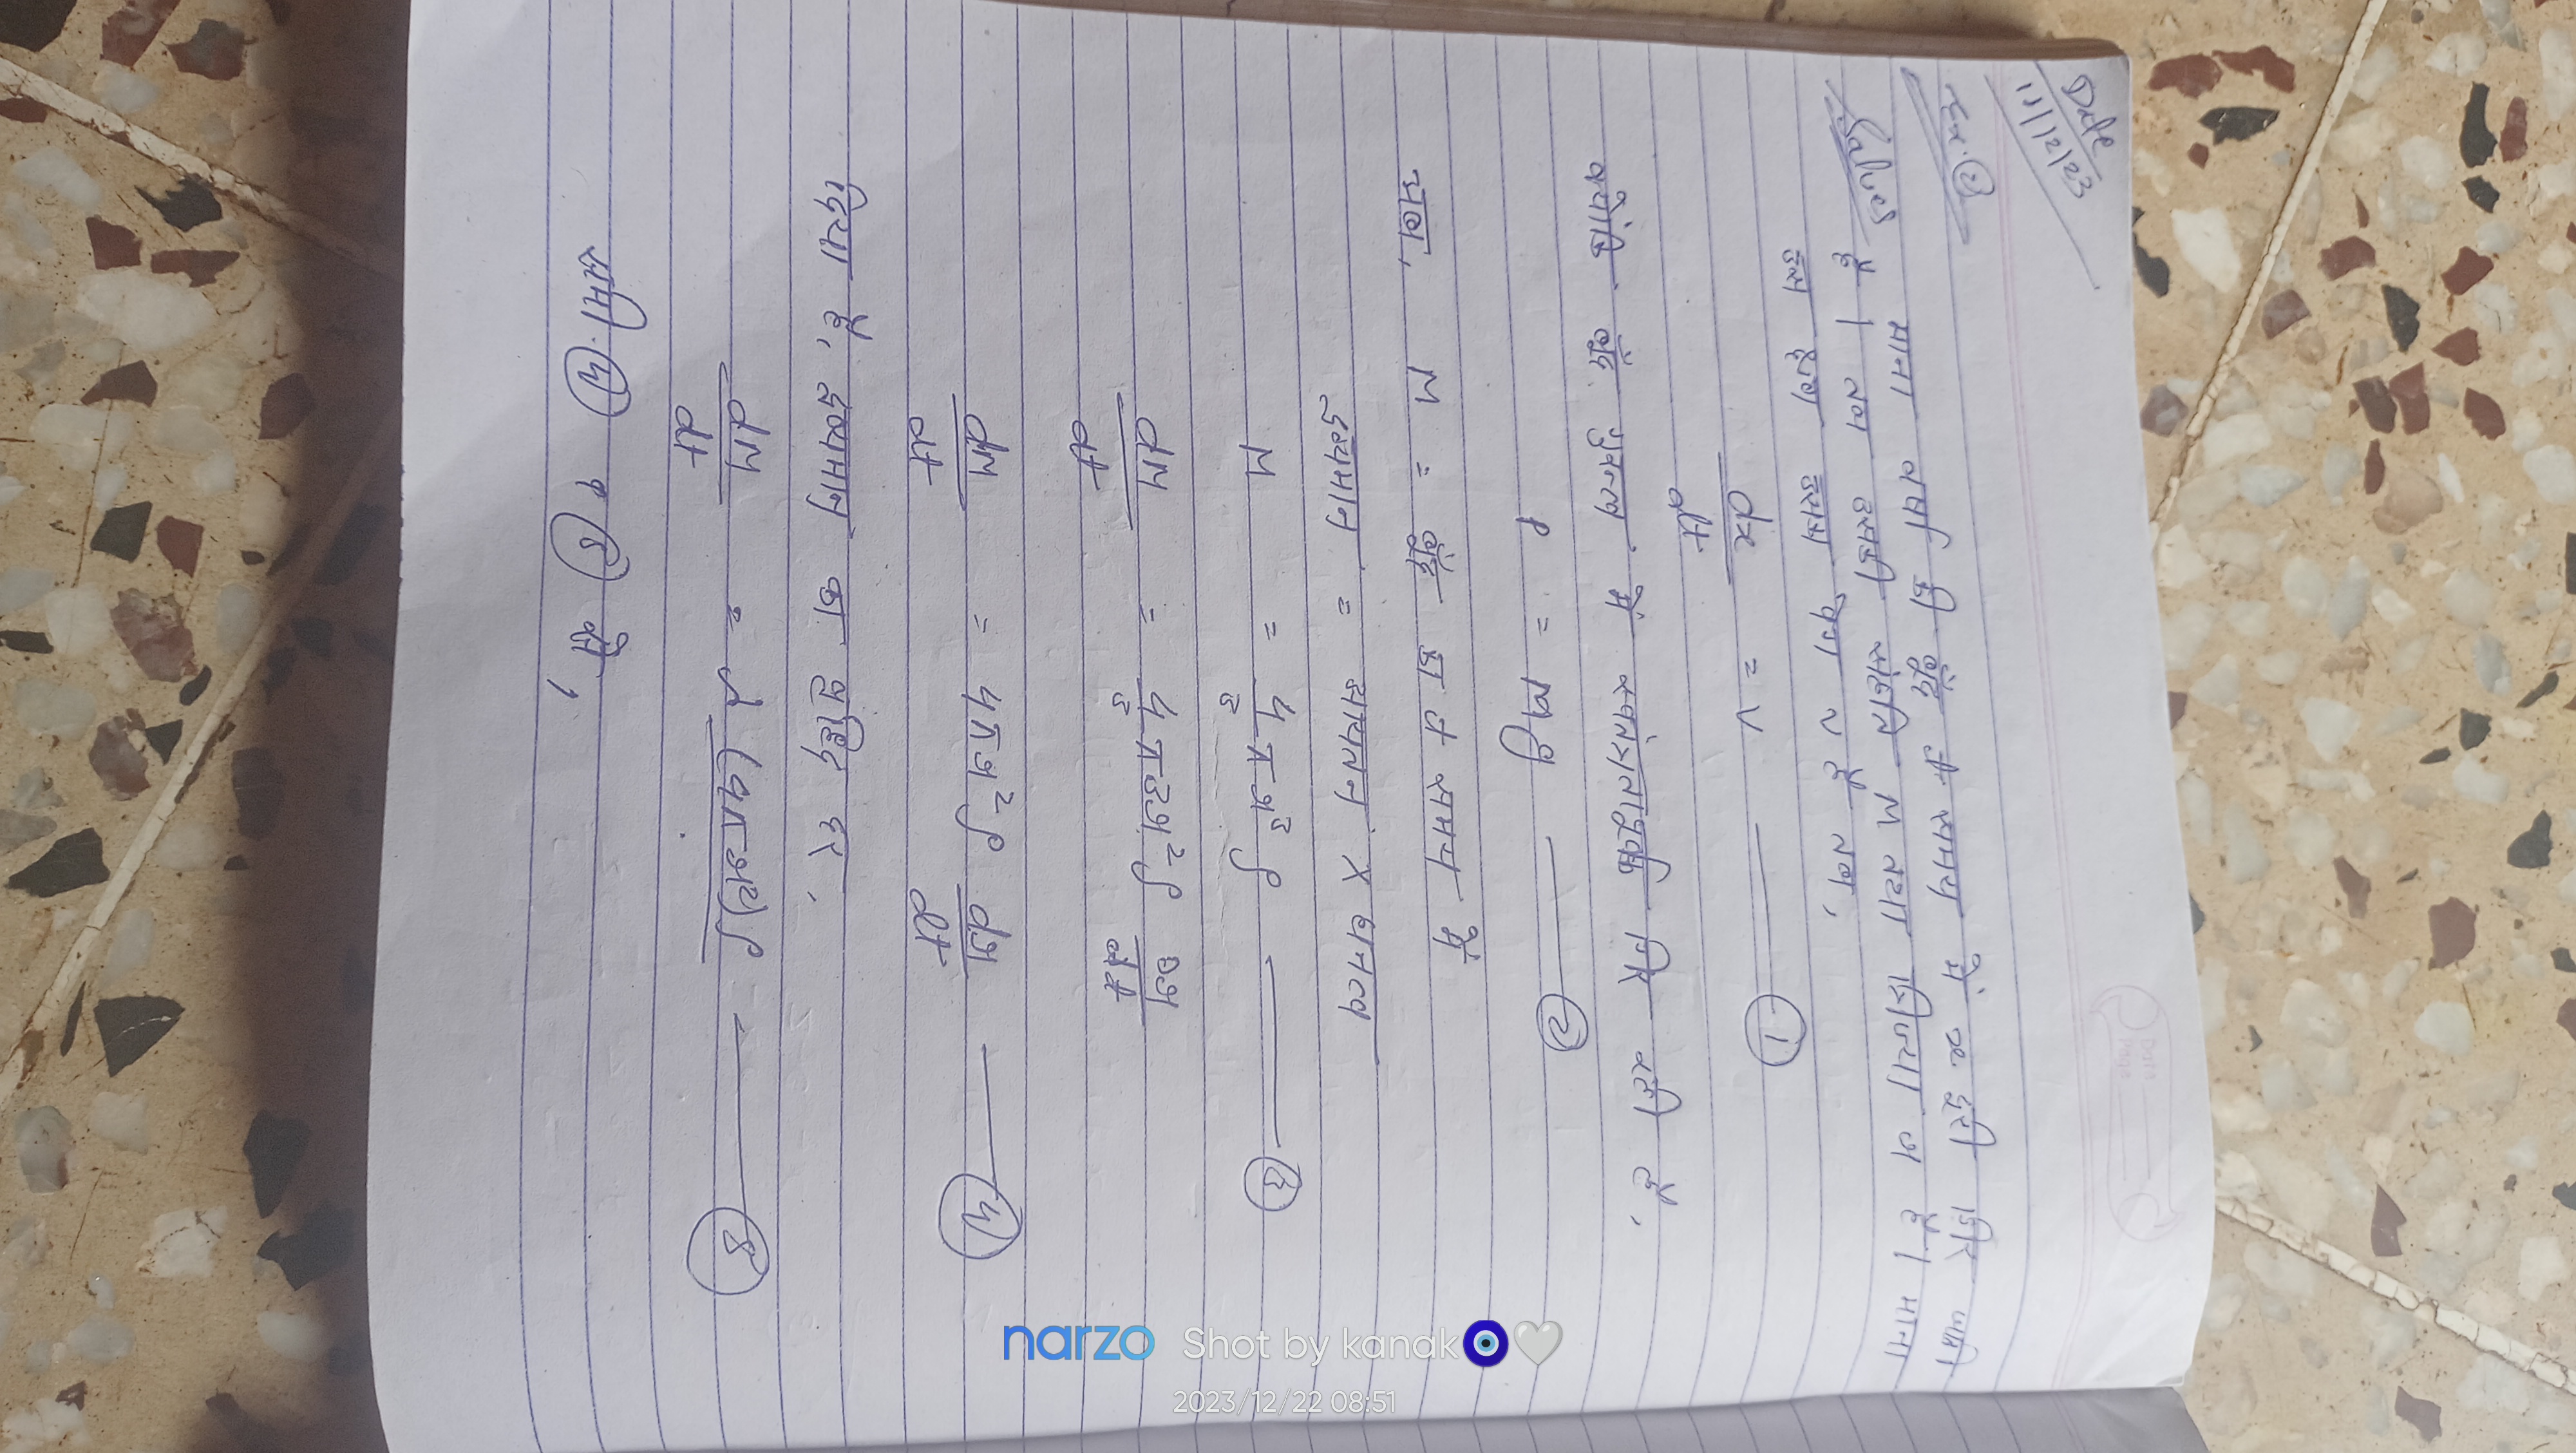 Date
Page
Date
11/12/23
Ex. ②
Solves माना वर्षा की बूँद t समय में x दूरी गिर जाती
है। तब उसकी संहति M तथा त्रिज्या r है। माना
उस क्षण उसका वेग v है तब,
dx/dt = v ——— ①
क्योंकि बूँद गुरुत्व में स्वतंत्रतापूर्वक गिर रही है,
P = Mg ——— ②
अब, M = बूँद का t समय में
द्रव्यमान = आयतन × घनत्व
M = 4/3 πr³ρ ——— ③
dM/dt = 4/3 π3r²ρ Dr/dt
dM/dt = 4πr²ρ dr/dt ——— ④
दिया है, द्रव्यमान का वृद्धि दर,
dM/dt = λ (4πr²)ρ ——— ⑤
समी. ④ व ⑤ से,
narzo Shot by kanak🧿🤍
2023/12/22 08:51